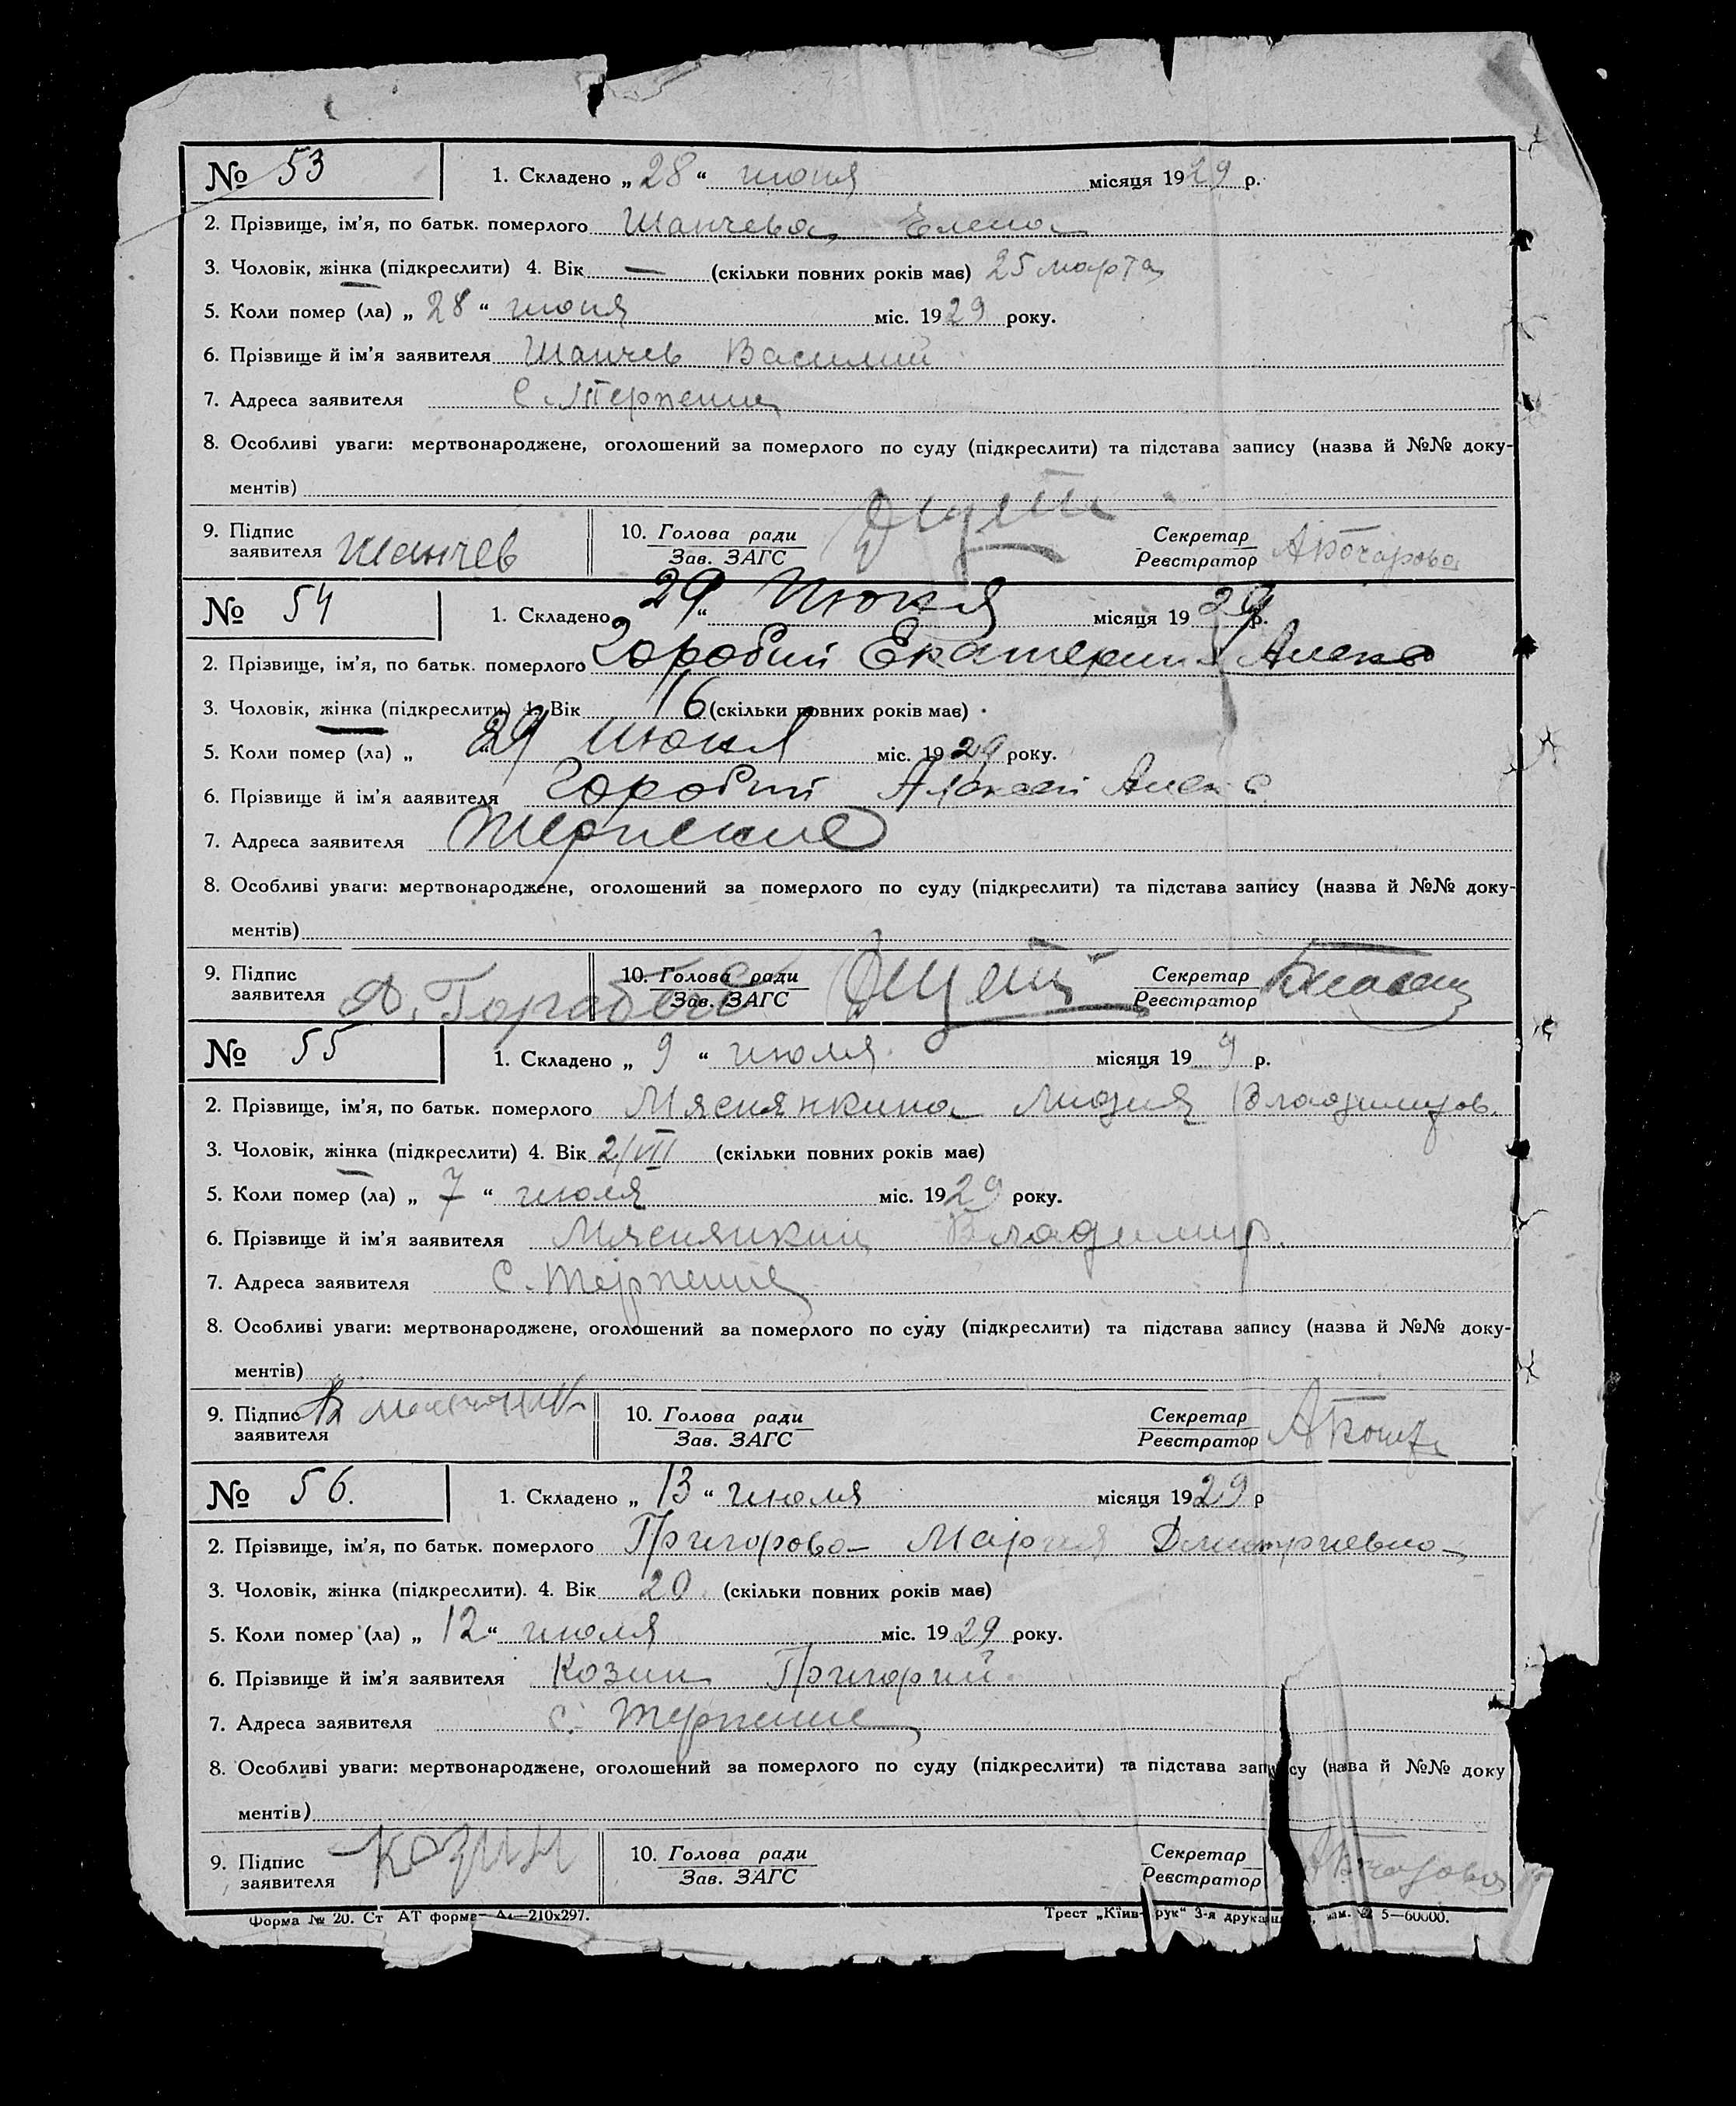 № 53
1. Складено „ 28 “ июня місяця 1929 р.
2. Прізвище, ім’я, по батьк. померлого Шанчева Елена
3. Чоловік, жінка (підкреслити) 4. Вік — (скільки повних років має) 25 марта
5. Коли помер (ла) „ 28 “ июня міс. 1929 року.
6. Прізвище й ім’я заявителя Шанчев Василий
7. Адреса заявителя с. Терпение
8. Особливі уваги: мертвонароджене, оголошений за померлого по суду (підкреслити) та підстава запису (назва й №№ доку-
ментів)
9. Підпис заявителя Шанчев 10. Голова ради Зав. ЗАГС Секретар Реєстратор А Бочарова
№ 54
1. Складено 29 “ Июня місяця 1929 р.
2. Прізвище, ім’я, по батьк. померлого Горобий Екатерина Алекс
3. Чоловік, жінка (підкреслити) 4. Вік 16 (скільки повних років має)
5. Коли помер (ла) „ 29 июня міс. 1929 року.
6. Прізвище й ім’я ааявителя Горобий Алексей Алекс
7. Адреса заявителя Терпение
8. Особливі уваги: мертвонароджене, оголошений за померлого по суду (підкреслити) та підстава запису (назва й №№ доку-
ментів)
9. Підпис заявителя А. 10. Голова ради Зав. ЗАГС Секретар Реєстратор
№ 55
1. Складено „ 9 “ июля місяця 19 9 р.
2. Прізвище, ім’я, по батьк. померлого Мяснянкина Лидия Владимиров.
3. Чоловік, жінка (підкреслити) 4. Вік 2/VII (скільки повних років має)
5. Коли помер (ла) „ 7 “ июля міс. 1929 року.
6. Прізвище й ім’я заявителя Мяснянкин Владимир.
7. Адреса заявителя с. Терпение
8. Особливі уваги: мертвонароджене, оголошений за померлого по суду (підкреслити) та підстава запису (назва й №№ доку-
ментів)
9. Підпис заявителя 10. Голова ради Зав. ЗАГС Секретар Реєстратор
№ 56.
1. Складено „ 13 “ июля місяця 1929 р
2. Прізвище, ім’я, по батьк. померлого Григорова Мария Дмитриевна
3. Чоловік, жінка (підкреслити). 4. Вік 20 (скільки повних років має)
5. Коли помер (ла) „ 12 “ июля міс. 1929 року.
6. Прізвище й ім’я заявителя Козин Григорий
7. Адреса заявителя с. Терпение
8. Особливі уваги: мертвонароджене, оголошений за померлого по суду (підкреслити) та підстава запису (назва й №№ доку
ментів)
9. Підпис заявителя Козин 10. Голова ради Зав. ЗАГС Секретар Реєстратор А Бочарова
Форма № 20. Ст АТ форма 210х297. Трест „Київ- рук“ 3-я 5—60000.